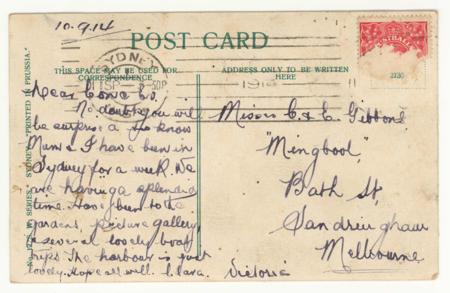 10.9.14
POST CARD
THIS SPACE MAY BE USED FOR
CORRESPONDENCE
ADDRESS ONLY TO BE WRITTEN
HERE
SYDNEY
AUSTRALIA
PRINTED IN PRUSSIA.
Dear
No doubt you will
be surprised to know
Mum & I have been in
Sydney for a week. We
are having a splendid
time. Have been to the
gardens, picture gallery,
& several lovely boat
trips. The harbour is just
lovely. Hope all well. Clara.
Misses C & E Gibbons
"Mingbool"
Bath St,
Sandringham
Melbourne
Victoria